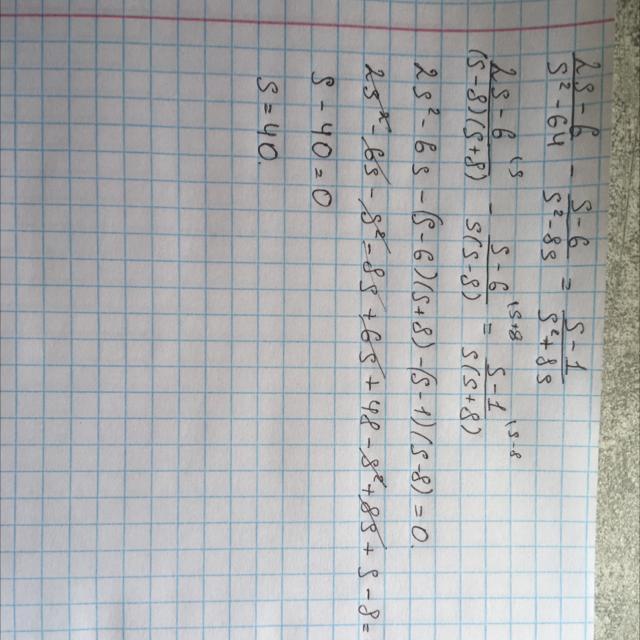 (2s-6)/(s²-64) - (s-6)/(s²-8s) = (s-1)/(s²+8s)
(2s-6)/((s-8)(s+8)) |s - (s-6)/(s(s-8)) |s+8 = (s-1)/(s(s+8)) |s-8
2s²-6s-(s-6)(s+8)-(s-1)(s-8)=0.
2s²-6s-s²-8s+6s+48-s²+8s+s-8=
s-40=0
s=40.